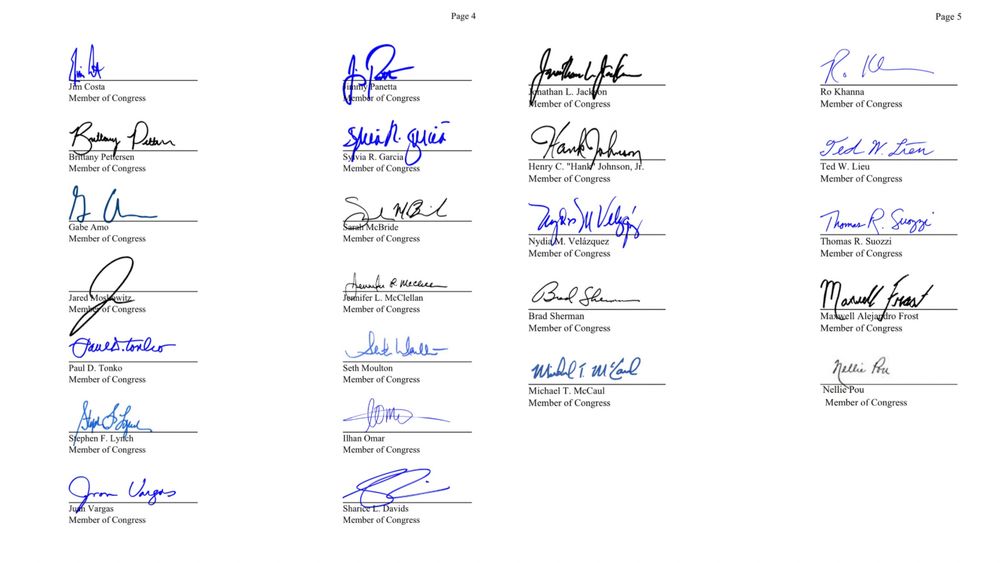 Page 4
Jim Costa
Member of Congress
Jimmy Panetta
Member of Congress
Brittany Pettersen
Brittany Pettersen
Member of Congress
Sylvia R. Garcia
Sylvia R. Garcia
Member of Congress
Gabe Amo
Member of Congress
Sarah McBride
Sarah McBride
Member of Congress
Jared Moskowitz
Member of Congress
Jennifer L. McClellan
Member of Congress
Paul D. Tonko
Paul D. Tonko
Member of Congress
Seth Moulton
Seth Moulton
Member of Congress
Stephen F. Lynch
Member of Congress
Ilhan Omar
Member of Congress
Juan Vargas
Juan Vargas
Member of Congress
Sharice L. Davids
Member of Congress
Page 5
Jonathan L. Jackson
Jonathan L. Jackson
Member of Congress
Ro Khanna
Member of Congress
Hank Johnson
Henry C. "Hank" Johnson, Jr.
Member of Congress
Ted W. Lieu
Ted W. Lieu
Member of Congress
Nydia M Velázquez
Nydia M. Velázquez
Member of Congress
Thomas R. Suozzi
Thomas R. Suozzi
Member of Congress
Brad Sherman
Brad Sherman
Member of Congress
Maxwell Frost
Maxwell Alejandro Frost
Member of Congress
Michael T. McCaul
Michael T. McCaul
Member of Congress
Nellie Pou
Nellie Pou
Member of Congress